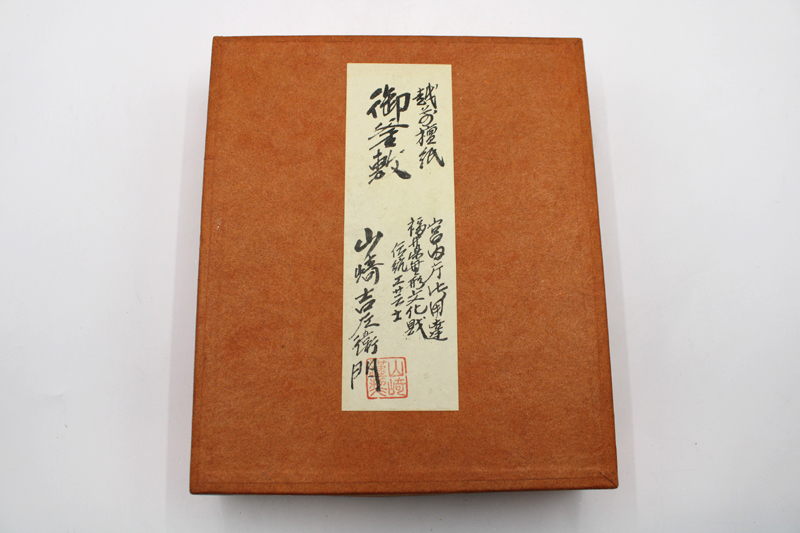 越前檀紙
御釜敷
宮内庁御用達
福井県無形文化財
伝統工芸士
山崎吉左衛門
山崎